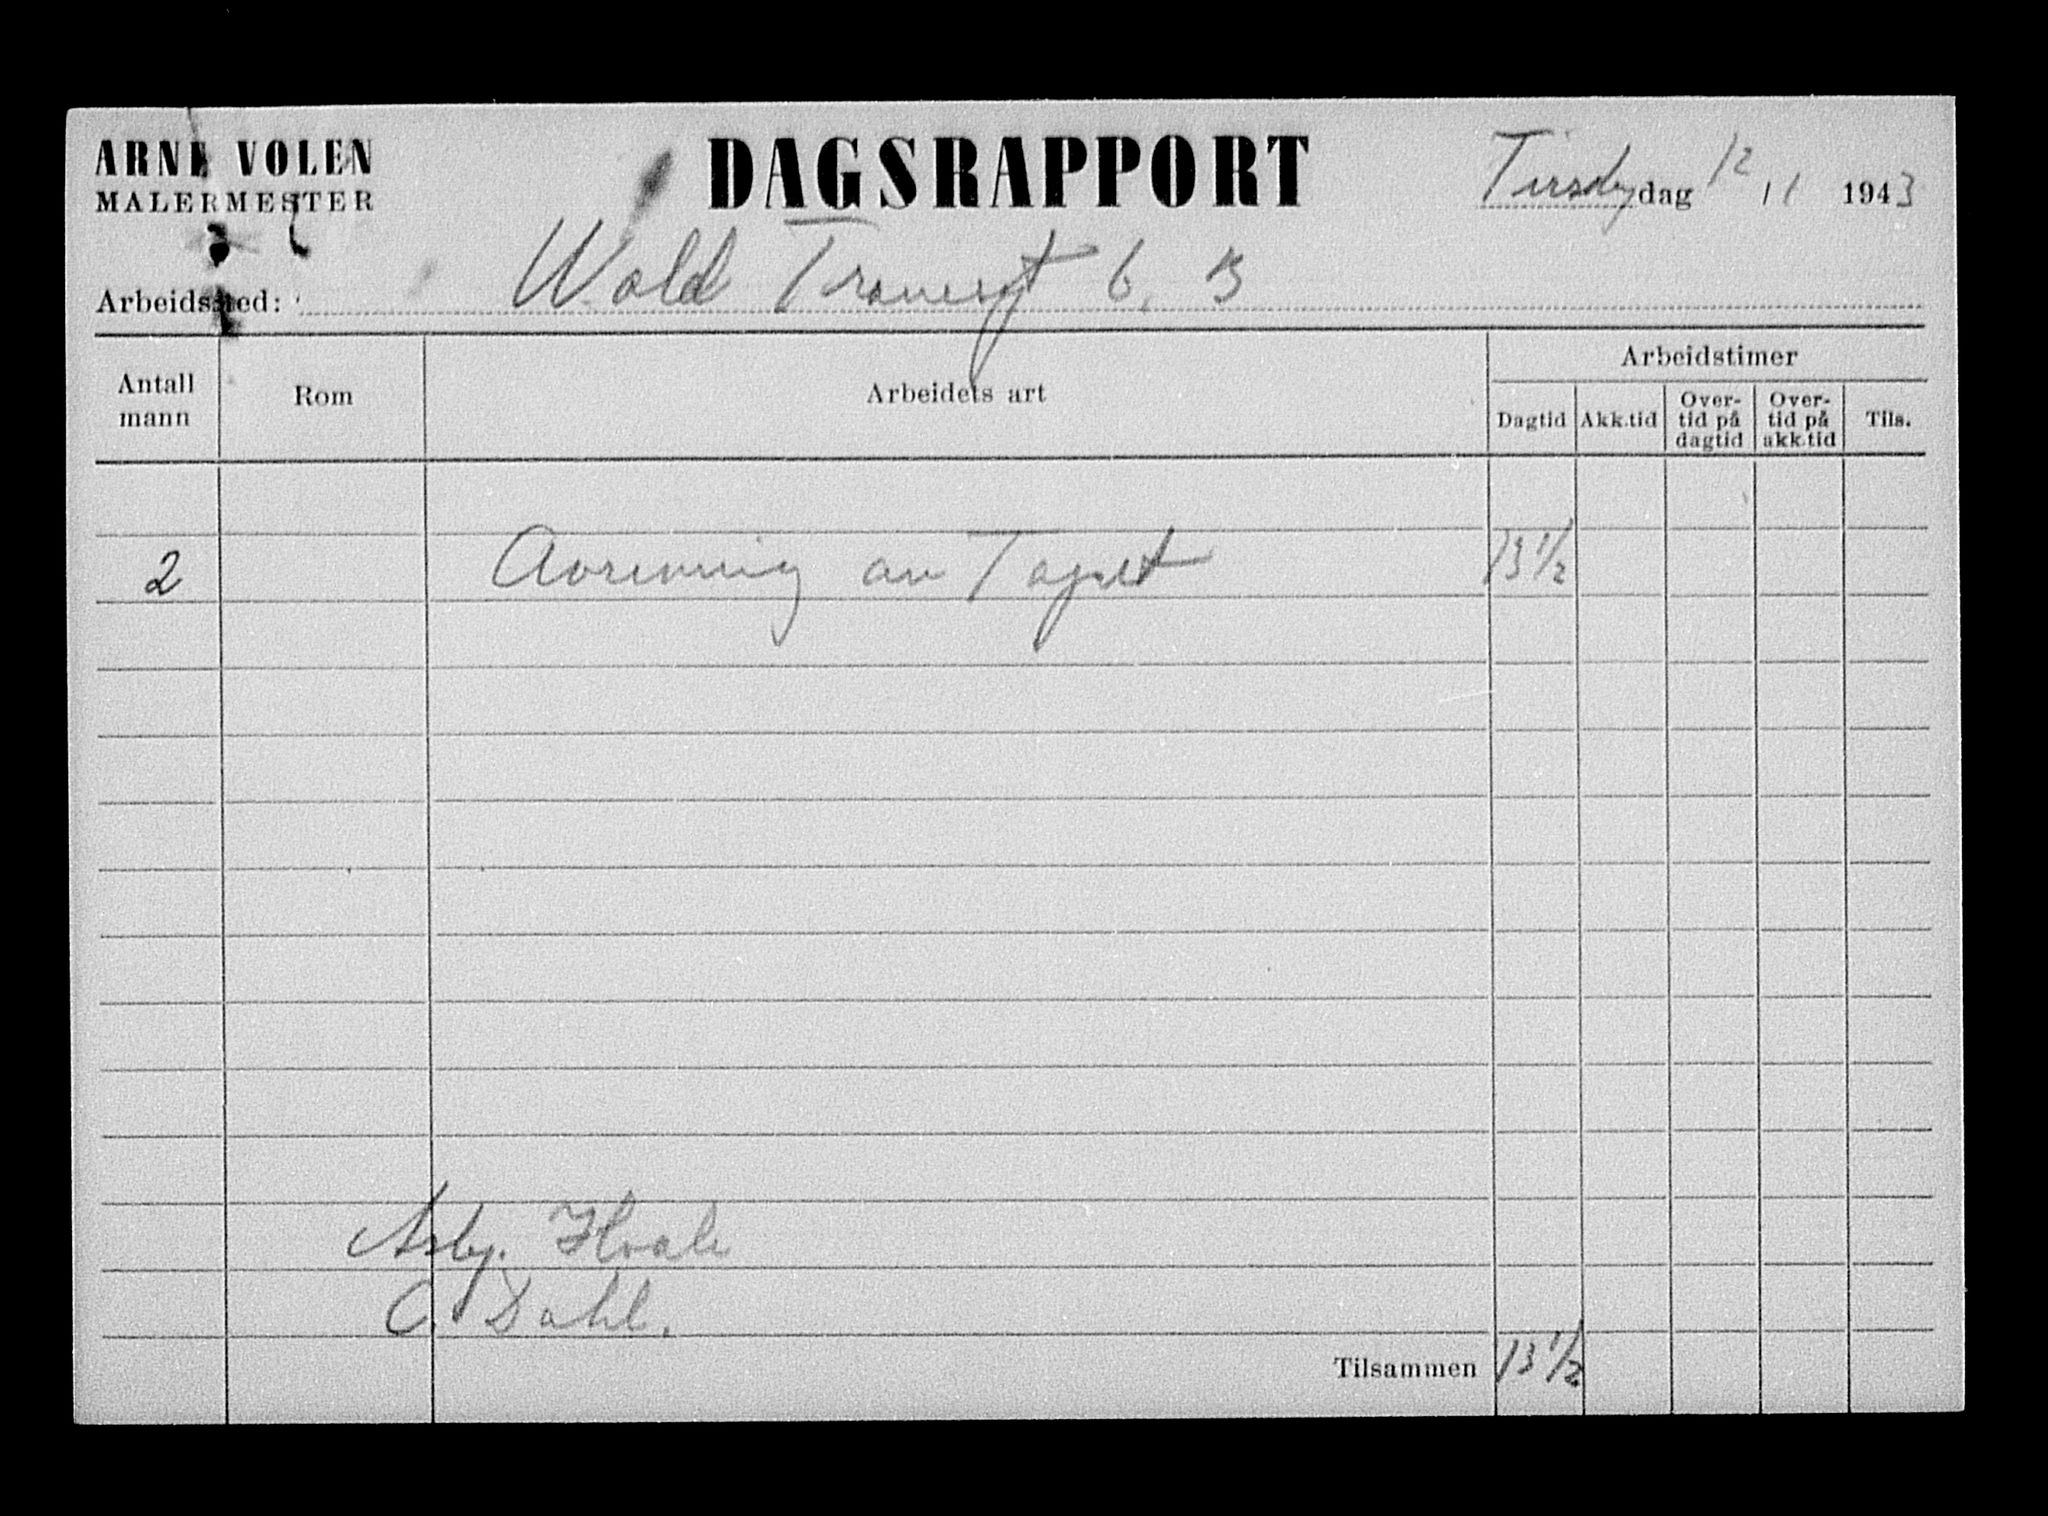 ARNE VOLEN
MALERMESTER
DAGSRAPPORT
Tirsdag dag 12 / 1 1943
Arbeidssted: Wold Tranesgt 6. B
Antall mann
Rom
Arbeidets art
Arbeidstimer
Dagtid
Akk.tid
Over-
tid på
dagtid
Over-
tid på
akk.tid
Tils.
2 Avrivning av Tapet 13 1/2
Asbj. Hval
C. Dahl.
Tilsammen 13 1/2